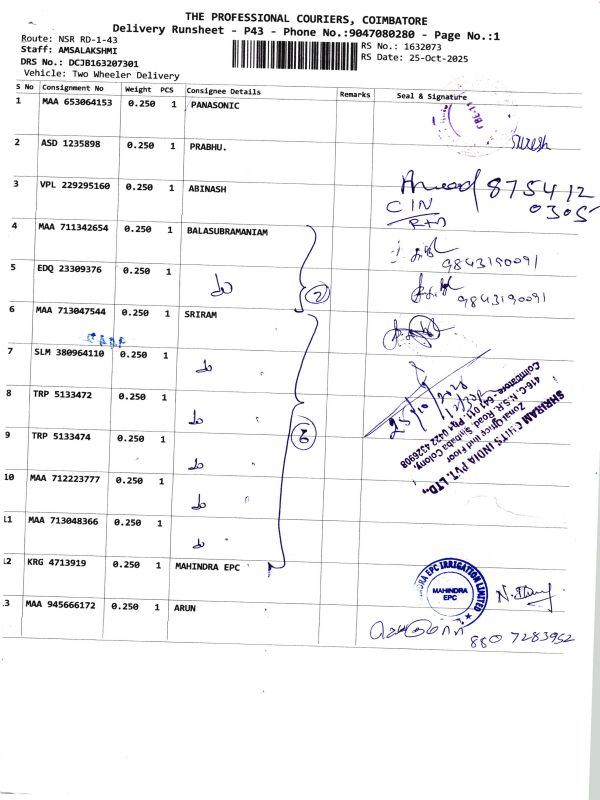 THE PROFESSIONAL COURIERS, COIMBATORE
Delivery Runsheet - P43 - Phone No.:9047080280 - Page No.:1
Route: NSR RD-1-43
Staff: AMSALAKSHMI
RS No.: 1632073
DRS No.: DCJB163207301
RS Date: 25-Oct-2025
Vehicle: Two Wheeler Delivery
S No Consignment No Weight PCS Consignee Details Remarks Seal & Signature
1 MAA 653064153 0.250 1 PANASONIC
2 ASD 1235898 0.250 1 PRABHU. Suresh
3 VPL 229295160 0.250 1 ABINASH 875412
0305
CIN
4 MAA 711342654 0.250 1 BALASUBRAMANIAM 9843190091
5 EDQ 23309376 0.250 1 do 2 9843190091
6 MAA 713047544 0.250 1 SRIRAM
7 SLM 380964110 0.250 1 do
8 TRP 5133472 0.250 1 do
9 TRP 5133474 0.250 1 do 6
10 MAA 712223777 0.250 1 do
11 MAA 713048366 0.250 1 do
12 KRG 4713919 0.250 1 MAHINDRA EPC
13 MAA 945666172 0.250 1 ARUN
SHRIRAM CHITS INDIA PVT. LTD.,
Zonal Office IInd Floor
416-C, N.S.R. Road, Saibaba Colony,
Coimbatore - 641 011. PH : 0422 4326908
MAHINDRA EPC IRRIGATION LIMITED
MAHINDRA
EPC
880 7283952